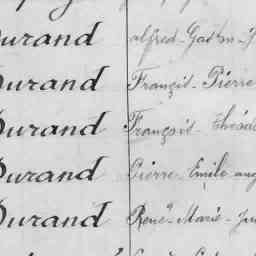 Durand Alfred - Gaston -
Durand François - Pierre
Durand François - Théod
Durand Pierre - Emile - aug
Durand René - Marie - Ju